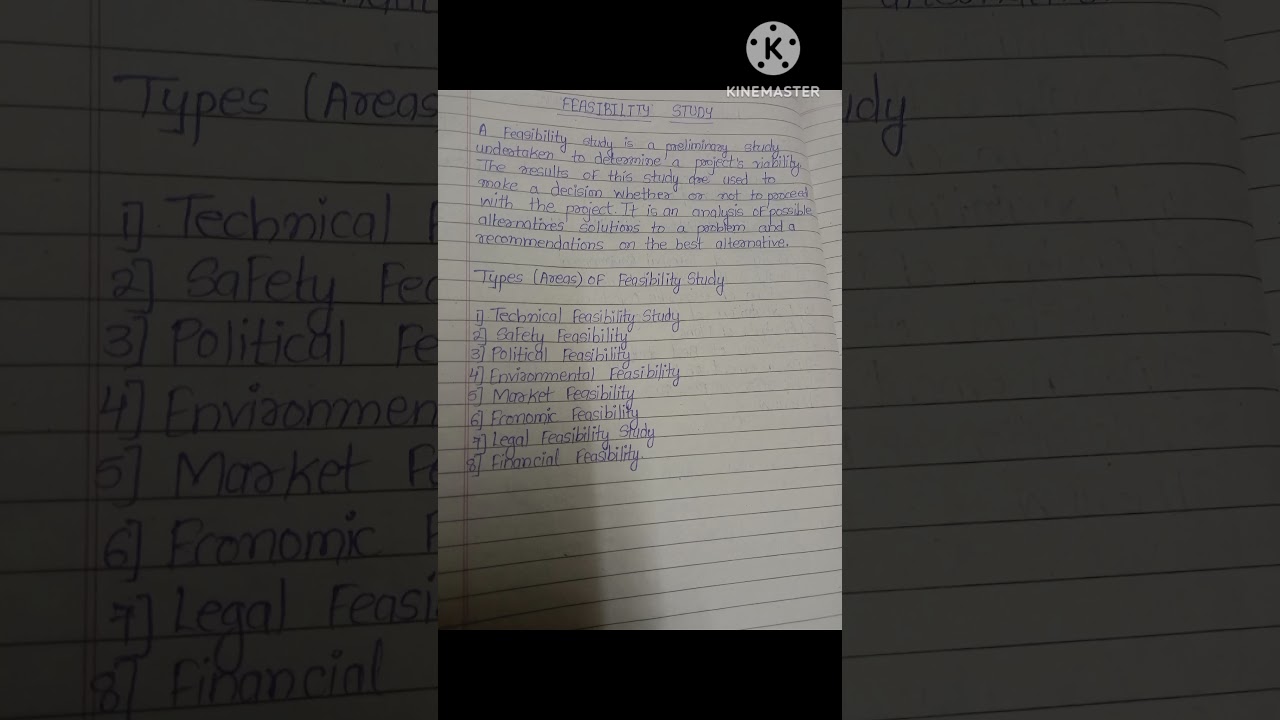 KINEMASTER
FEASIBILITY STUDY
A Feasibility study is a preliminary study
undertaken to determine a project's viability.
The results of this study are used to
make a decision whether or not to proceed
with the project. It is an analysis of possible
alternatives solutions to a problem and a
recommendations on the best alternative.
Types (Areas) OF Feasibility Study
1] Technical Feasibility Study
2] Safety Feasibility
3] Political Feasibility
4] Environmental Feasibility
5] Market Feasibility
6] Economic Feasibility
7] Legal Feasibility Study
8] Financial Feasibility
Types (Areas
udy
1] Technical F
2] Safety Fea
3] Political Fe
4] Environmen
5] Market Fe
6] Economic F
7] Legal Feasi
8] Financial